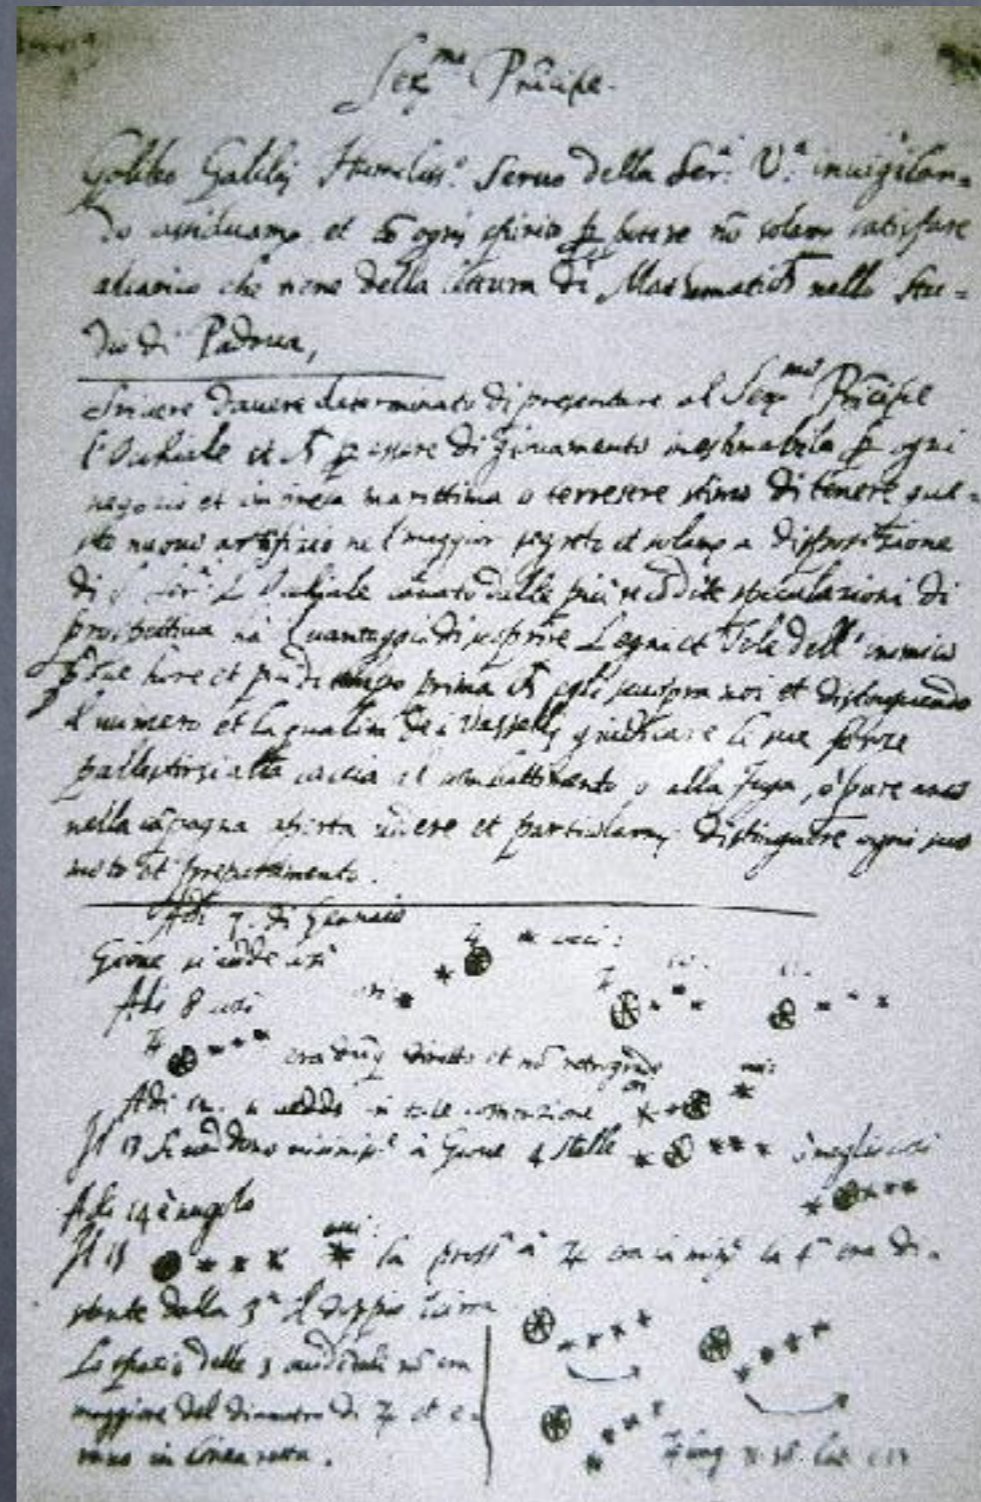 Ser.mo Principe.
Galileo Galilei Humiliss.o Servo della Ser.a V.a invigilan=
do assiduam.te et cō ogni spirito p potere nō solam.te satisfare
alcarico che tiene della lettura di Mathematica nello Stu=
dio di Padova,
Scrivere davere determinato di presentare al Ser.mo Principe
l'Occhiale et p essere di giovamento inestimabile p ogni
negotio et impresa marittima o terrestre stimo di tenere que=
sto nuovo artifizio nel maggior segreto et solam.te a disposizione
di S. Ser.a L'Occhiale cavato dalle più recōdite speculazioni di
prospettiva ha il vantaggio di scoprire Legni et Vele dell' inimico
p due hore et più di tempo prima egli scuopra noi et distinguendo
il numero et la qualità de i Vasselli giudicare le sue forze
pallestirsi alla caccia al combattimento o alla fuga, o pure anco
nella cāpagna aperta vedere et particolarm.te distinguere ogni suo
moto et preparamento.
Adì 7. di Gennaio
Gione si vede così occ:
Adì 8 così ori:
era dūq diretto et nō retrogrado
Adì 12. si vedde in tale costituzione ori occ:
Il 13 si veddono à Giove 4 stelle ò meglio così
Adì 14 è nugolo
Il 15 occ: la pross.a à ♃ era la min.e la 4.a era di=
stante dalla 3.a il doppio
Lo spazio delle 3 occidentali nō era
maggiore del diametro di ♃ et e=
rano in linea retta.
♃ long.